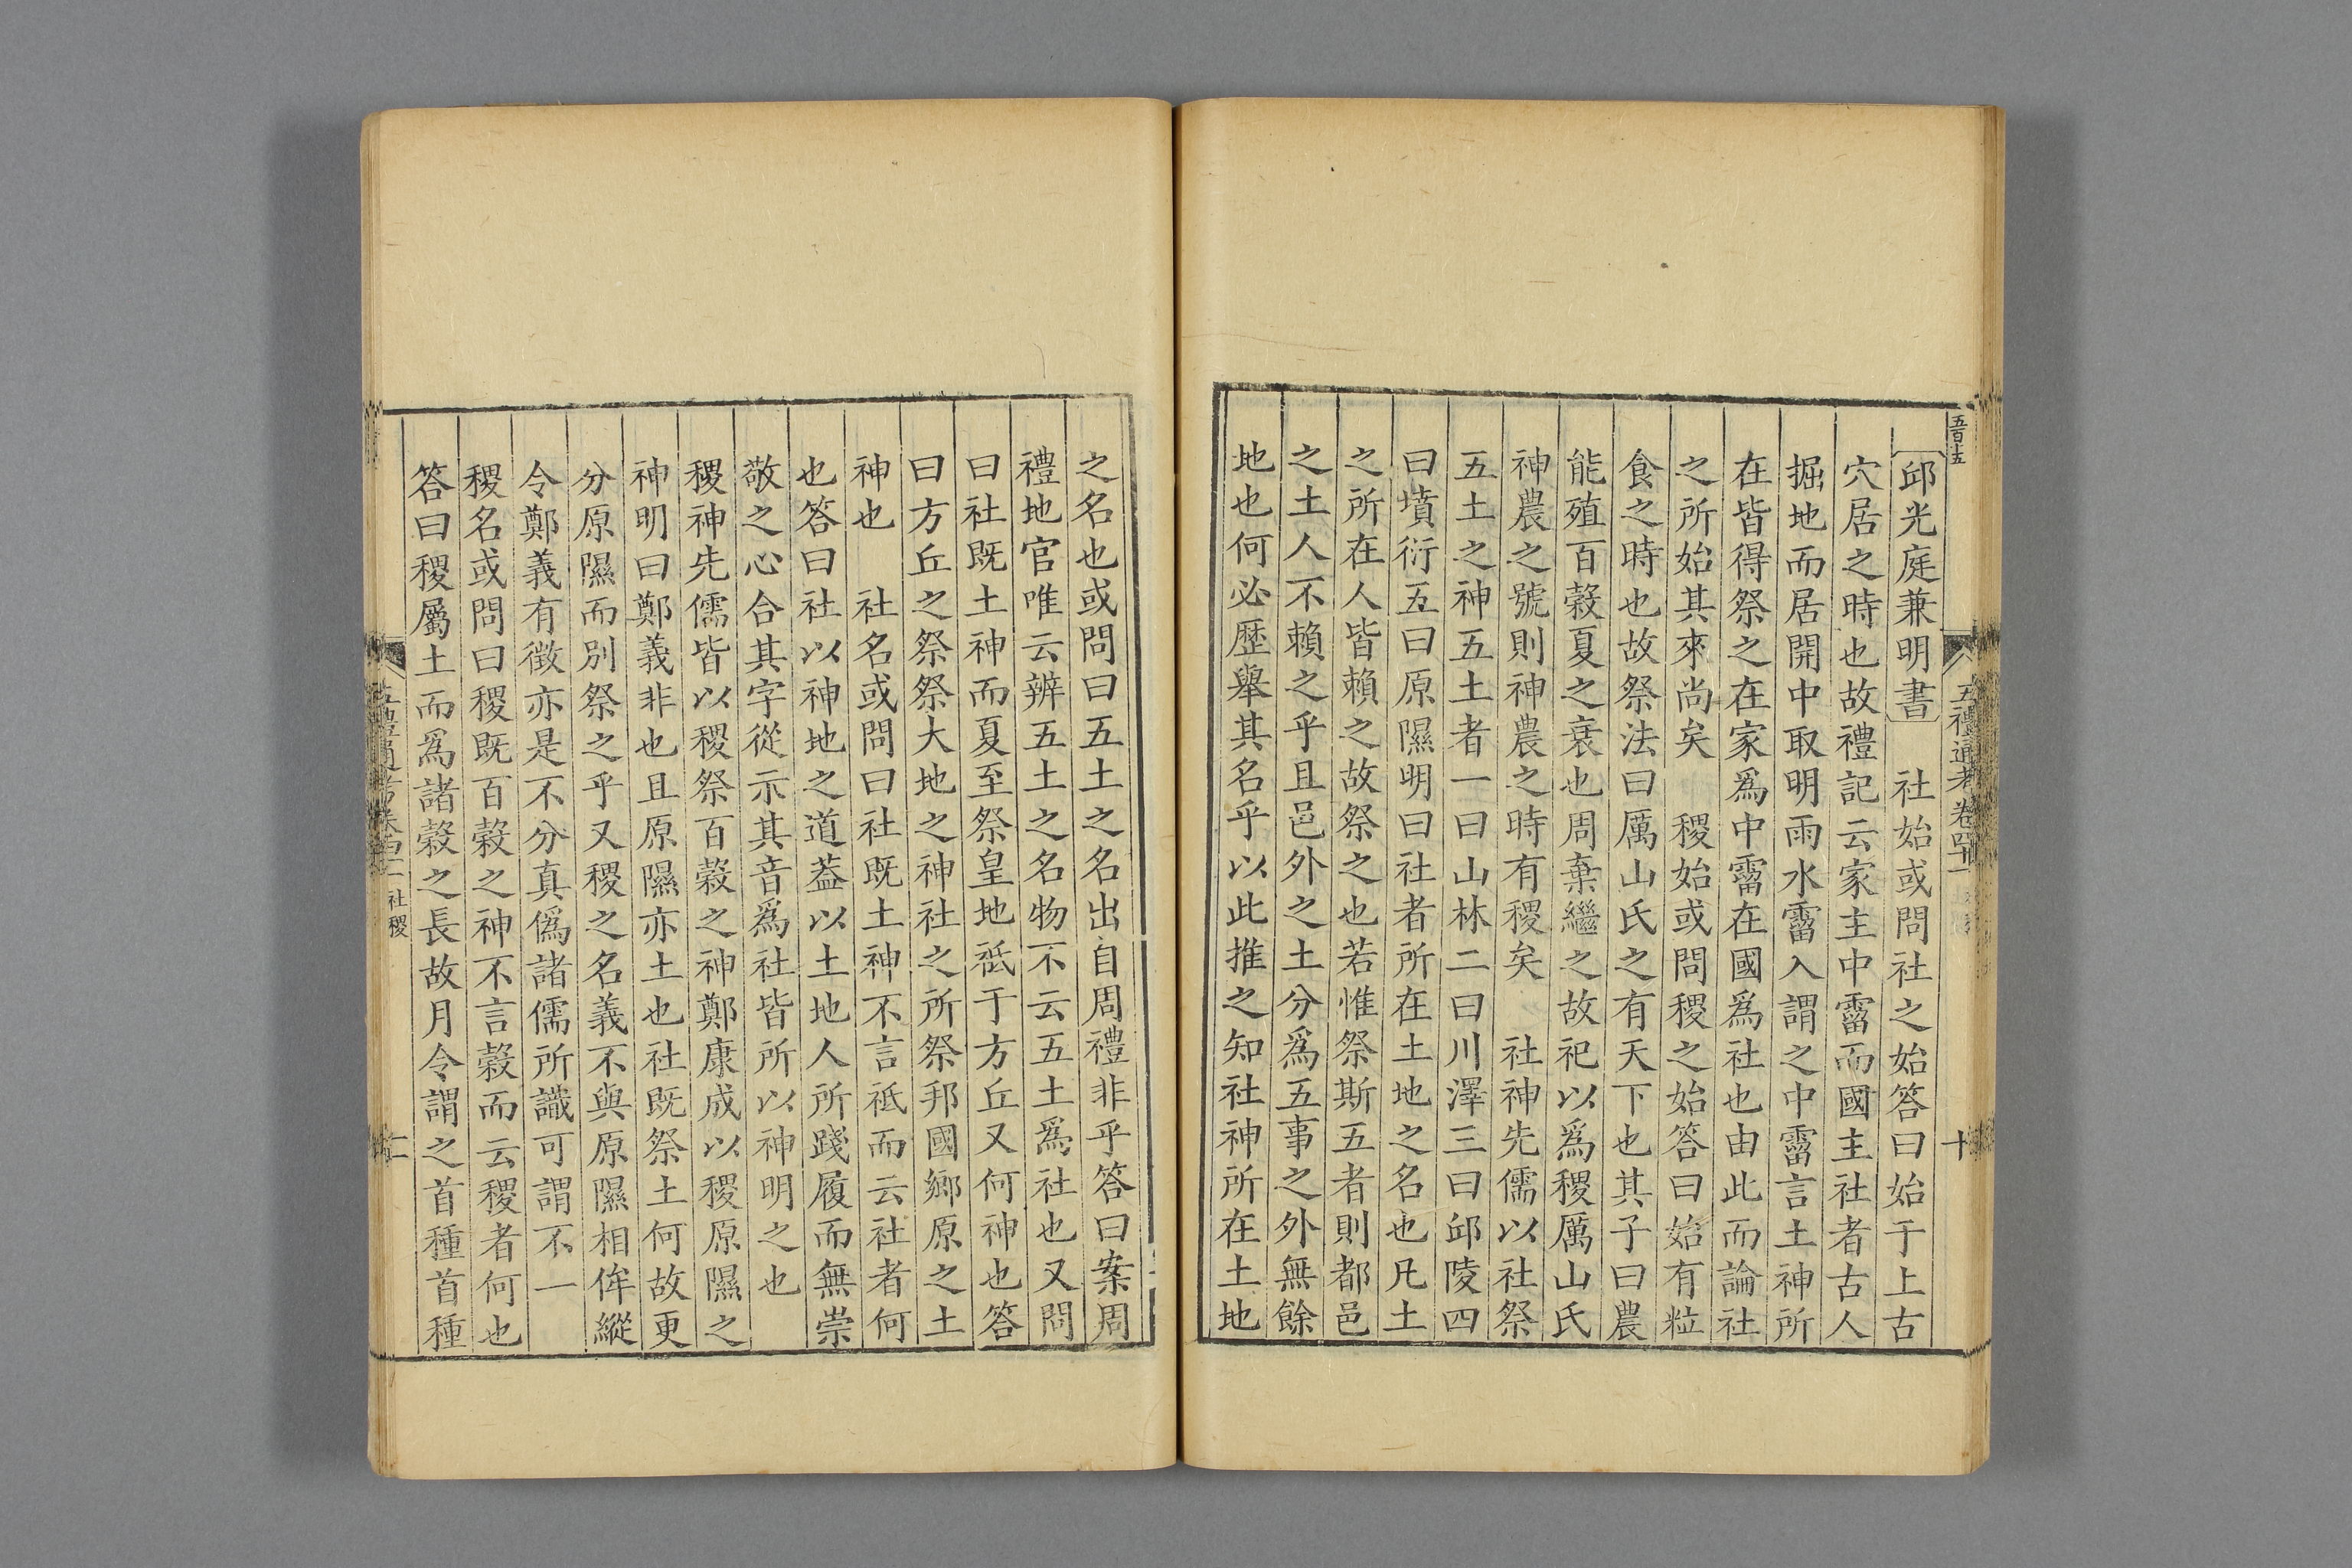 五百十五
五禮通考卷四十一
十
邱光庭兼明書 社始或問社之始答曰始于上古
穴居之時也故禮記云家主中霤而國主社者古人
掘地而居開中取明雨水霤入謂之中霤言土神所
在皆得祭之在家爲中霤在國爲社也由此而論社
之所始其來尚矣 稷始或問稷之始答曰始有粒
食之時也故祭法曰厲山氏之有天下也其子曰農
能殖百穀夏之衰也周棄繼之故祀以爲稷厲山氏
神農之號則神農之時有稷矣 社神先儒以社祭
五土之神五土者一曰山林二曰川澤三曰邱陵四
曰墳衍五曰原隰明曰社者所在土地之名也凡土
之所在人皆賴之故祭之也若惟祭斯五者則都邑
之土人不賴之乎且邑外之土分爲五事之外無餘
地也何必歷舉其名乎以此推之知社神所在土地
之名也或問曰五土之名出自周禮非乎答曰案周
禮地官唯云辨五土之名物不云五土爲社也又問
曰社既土神而夏至祭皇地祗于方丘又何神也答
曰方丘之祭祭大地之神社之所祭邦國鄉原之土
神也 社名或問曰社既土神不言祗而云社者何
也答曰社以神地之道葢以土地人所踐履而無崇
敬之心合其字從示其音爲社皆所以神明之也
稷神先儒皆以稷祭百穀之神鄭康成以稷原隰之
神明曰鄭義非也且原隰亦土也社既祭土何故更
分原隰而別祭之乎又稷之名義不與原隰相侔縱
令鄭義有徵亦是不分真僞諸儒所識可謂不一
稷名或問曰稷既百穀之神不言穀而云稷者何也
答曰稷屬土而爲諸穀之長故月令謂之首種首種
社稷